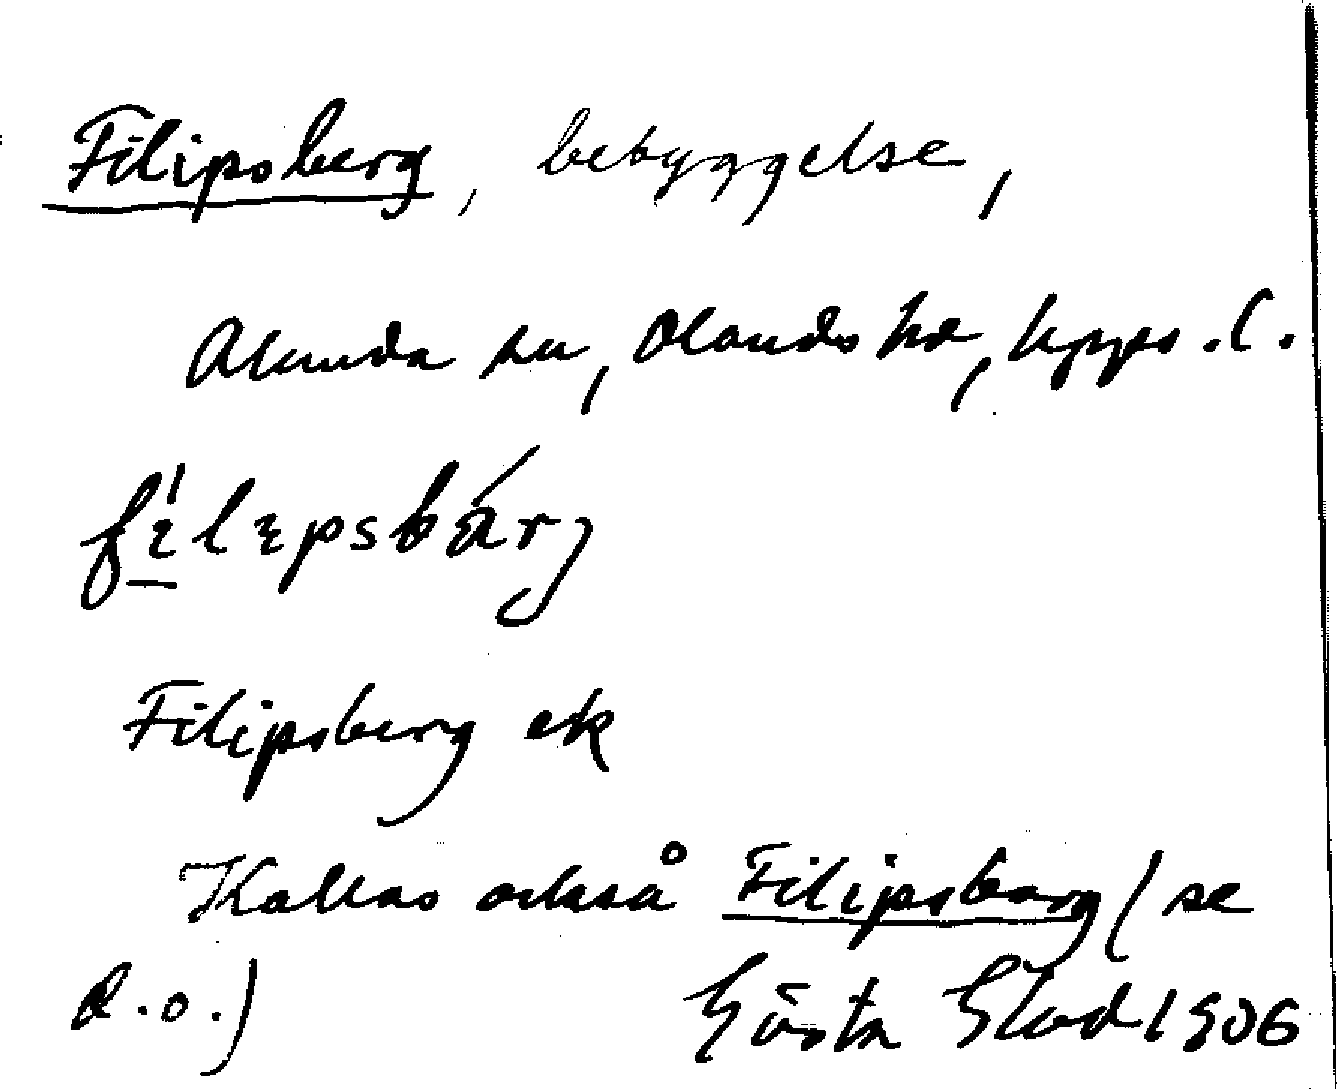 Filipsberg, bebyggelse,
Alunda sn, Olands hd, Upps. l.
Filipsberg ek
Kallas också Filipsborg (se
d.o.) Gösta 1906